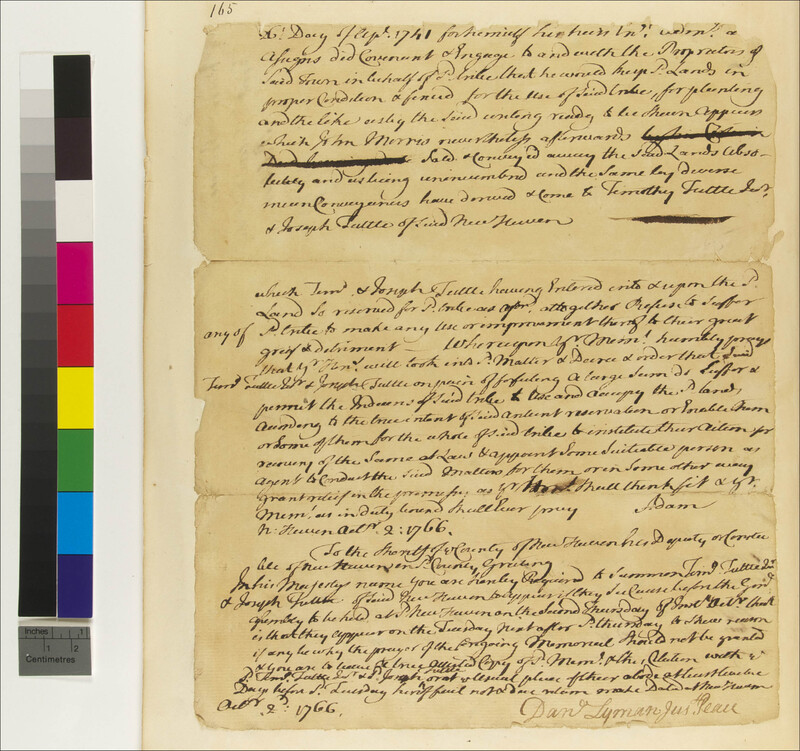 165
Day of Sept. 1741 for himself his heirs
Assigns did Covenant & Engage to and with the Proprietors of
said Town in behalf of sd. tribe that he would keep sd. Lands in
proper Condition & fenced for the Use of said tribe, for planting
and the like as by the said writing ready to be shewn appears
which John Morris nevertheless afterwards
Sold & Convey'd away the said Lands Abso-
lutely and as being unincumbred and the same by diverse
mean Conveyances have derived & Come to Timothy Tuttle Esqr.
& Joseph Tuttle of said New Haven
which Timo. & Joseph Tuttle having Entered into & upon the sd.
Land so reserved for sd. tribe as aforsd. altogether Refuse to Suffer
any of sd. tribe to make any Use or improvement thereof to their great
grief & detriment Whereupon yr. Meml. humbly prays
that yr. Honrs. will look into sd. Matter & Decree & order that said
Timo. Tuttle Esqr. & Joseph Tuttle on pain of forfeiting a large Sum do Suffer &
permit the Indians of said tribe to Use and occupy the sd. lands
According to the true intent of said antient reservation or Enable them
or some of them for the whole of said tribe to institute their Action for
recovery of the Same at Law & appoint Some Suiteable person as
Agent to Conduct the said Matters for them or in Some other way
grant relief in the premises as yr. Honrs. shall think fit & yr.
Meml. as in duty bound shall Ever pray Adam
N: Haven Octr. 2: 1766.
To the Sheriff of ye County of New Haven his Deputy or Consta
ble of New Haven in sd. County, Greeting
In his Majestys name You are hereby Required to Summon Timo. Tuttle Esqr.
& Joseph Tuttle of said New Haven to appear if they See Cause before the Genl.
Assembly to be held at sd. New Haven on the Second Thursday of Inst. Octr. that
is that they appear on the Tuesday next after sd. thursday to Shew reason
if any be why the prayer of the foregoing Memorial Should not be granted
& you are to leave a true attested Copy of sd. Meml. & this Citation with ye
sd. Timo. Tuttle Esqr. & sd. Joseph Tuttle or at ye usual place of their abode at least twelve
Days before sd. Tuesday hereof fail not & due return make Dated at New Haven
Octr. 2d. 1766.
Danl. Lyman Jus. Peace
Inches 1 2
Centimetres